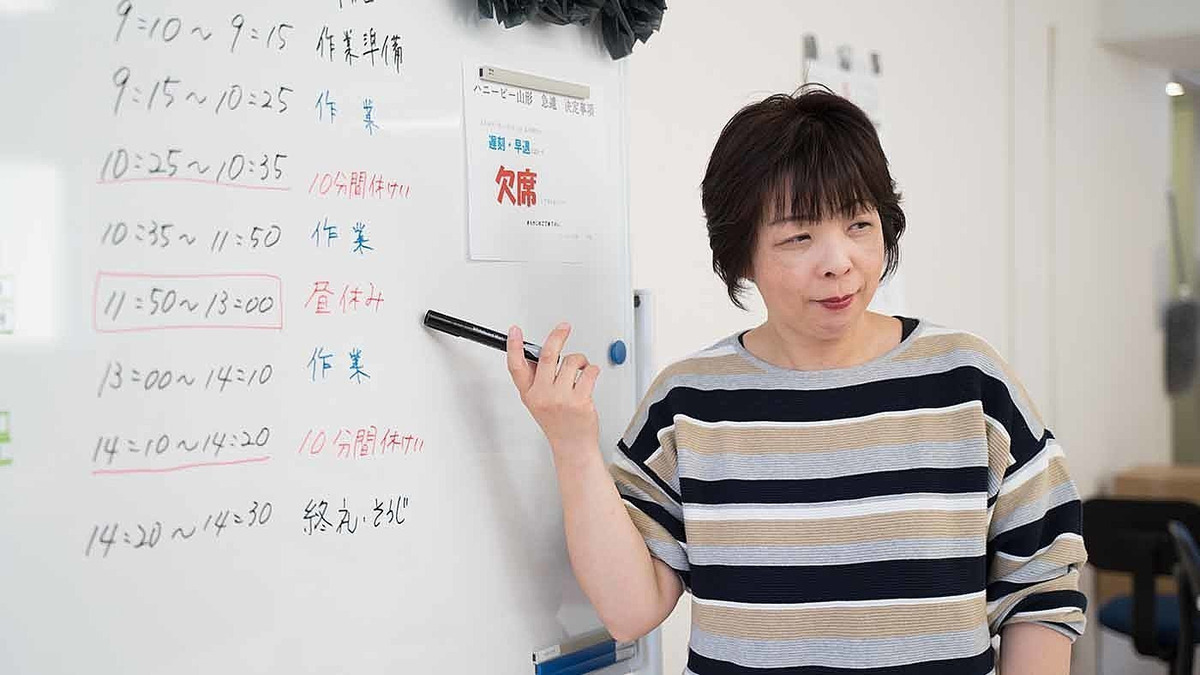 9:10～9:15 作業準備
9:15～10:25 作業
10:25～10:35 10分間休けい
10:35～11:50 作業
11:50～13:00 昼休み
13:00～14:10 作業
14:10～14:20 10分間休けい
14:20～14:30 終礼・そうじ
ハニービー山形 急遽 決定事項
遅刻・早退
欠席